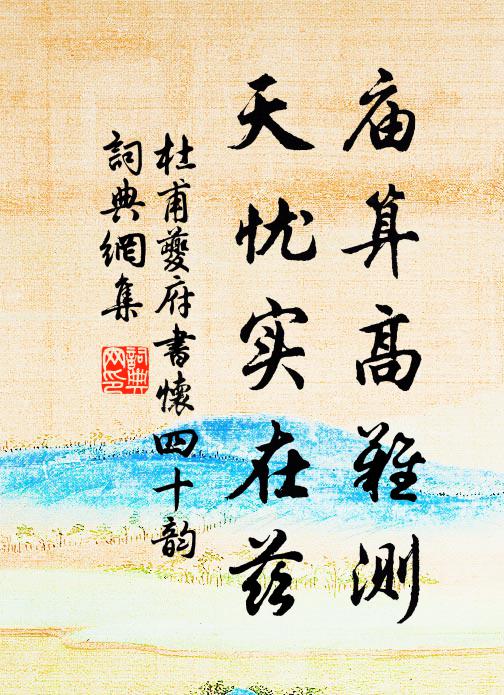 庙算高难测
天忧实在兹
杜甫夔府書懷四十韵
詞典網集
詞典网印